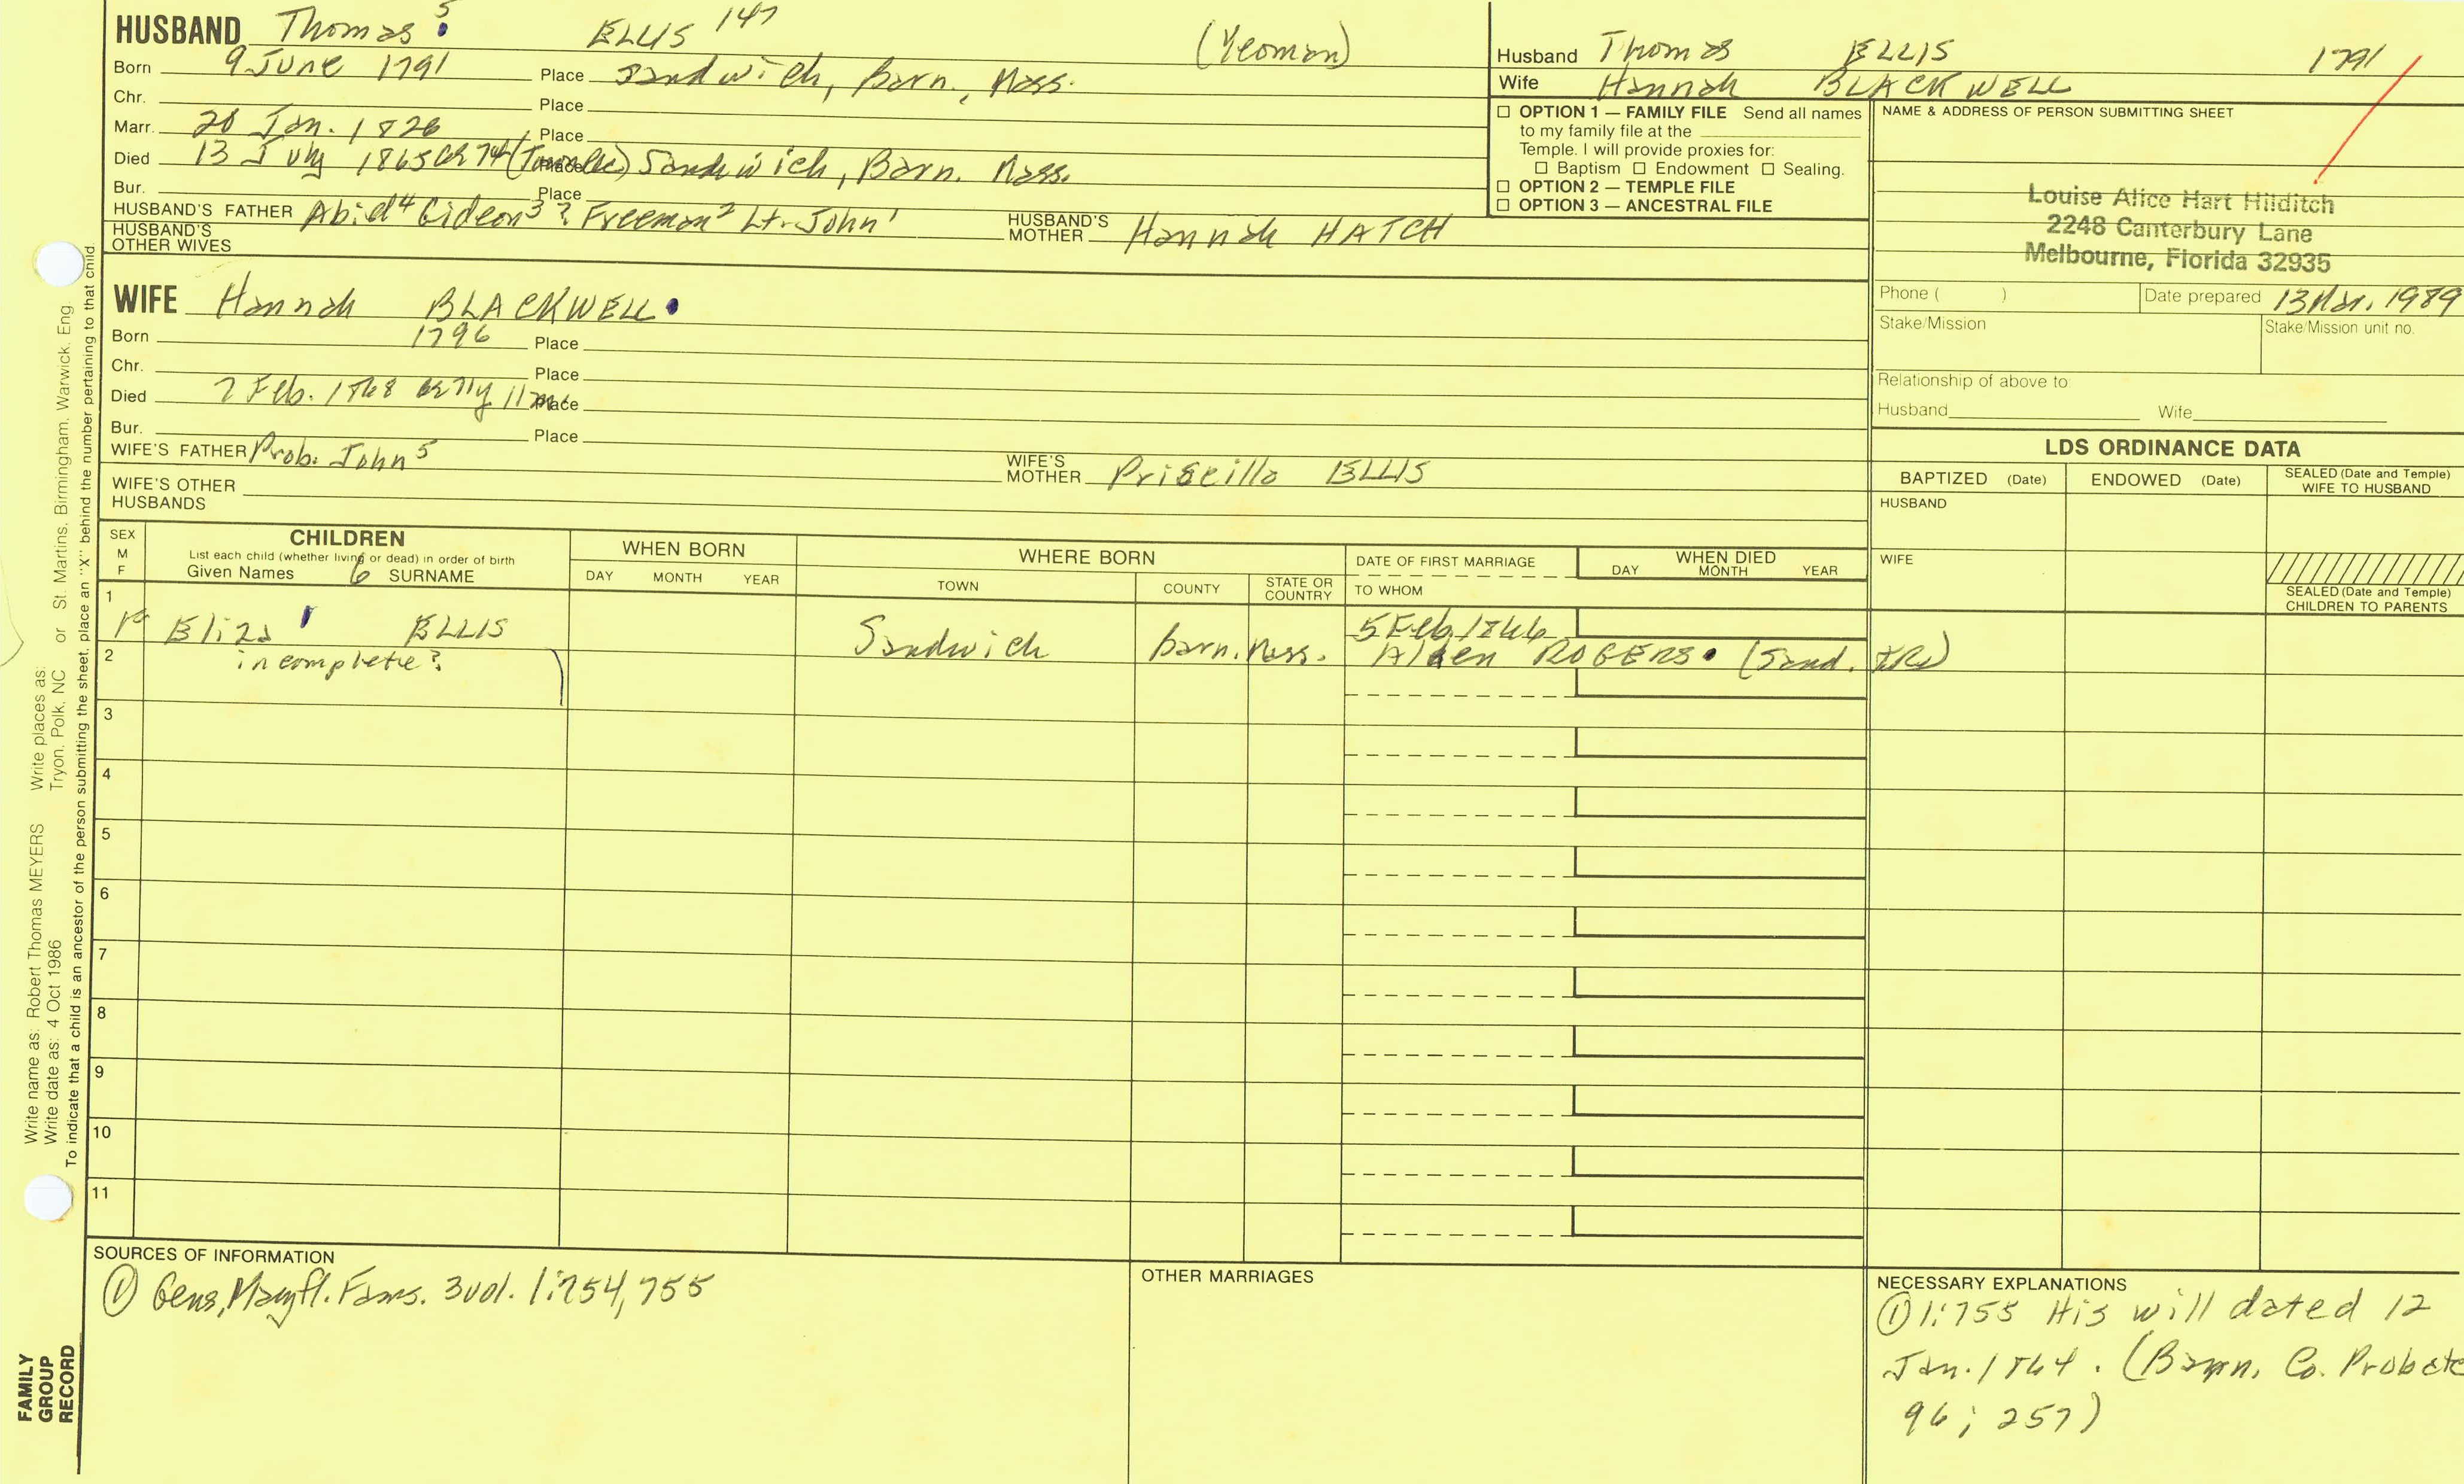 HUSBAND Thomas 5 ELLIS 147 (Yeoman)
Born 9 June 1791 Place Sandwich, Barn., Mass.
Chr. Place
Marr. 20 Jan. 1826 Place
Died 13 July 1865 ae 74 Place Sandwich, Barn. Mass.
Bur. Place
HUSBAND'S FATHER Abiel 4 Gideon 3 ? Freeman 2 Lt. John 1 HUSBAND'S MOTHER Hannah HATCH
HUSBAND'S OTHER WIVES
WIFE Hannah BLACKWELL
Born 1796 Place
Chr. Place
Died 7 Feb. 1868 ae 71y 11m Place
Bur. Place
WIFE'S FATHER Prob. John 5 WIFE'S MOTHER Priscilla ELLIS
WIFE'S OTHER HUSBANDS
Husband Thomas ELLIS 1791
Wife Hannah BLACKWELL
☐ OPTION 1 — FAMILY FILE Send all names
to my family file at the
Temple. I will provide proxies for:
☐ Baptism ☐ Endowment ☐ Sealing.
☐ OPTION 2 — TEMPLE FILE
☐ OPTION 3 — ANCESTRAL FILE
NAME & ADDRESS OF PERSON SUBMITTING SHEET
Louise Alice Hart Hilditch
2248 Canterbury Lane
Melbourne, Florida 32935
Phone ( ) Date prepared 13 Mar. 1989
Stake/Mission Stake/Mission unit no.
Relationship of above to
Husband Wife
LDS ORDINANCE DATA
BAPTIZED (Date) ENDOWED (Date) SEALED (Date and Temple) WIFE TO HUSBAND
HUSBAND
WIFE
SEALED (Date and Temple)
CHILDREN TO PARENTS
SEX M F
CHILDREN
List each child (whether living or dead) in order of birth
Given Names 6 SURNAME
WHEN BORN
DAY MONTH YEAR
WHERE BORN
TOWN COUNTY STATE OR COUNTRY
DATE OF FIRST MARRIAGE
TO WHOM
WHEN DIED
DAY MONTH YEAR
1 Eliza ELLIS Sandwich Barn. Mass. 5 Feb. 1846
Alden ROGERS (Sand.
2 incomplete?
3
4
5
6
7
8
9
10
11
SOURCES OF INFORMATION
① Gens, Mayfl. Fams. 3 vol. 1:754, 755
OTHER MARRIAGES
NECESSARY EXPLANATIONS
① 1:755 His will dated 12
Jan. 1864. (Barn. Co. Probate
96; 257)
Write name as: Robert Thomas MEYERS Write places as: Tryon, Polk, NC or St. Martins, Birmingham, Warwick, Eng
Write date as: 4 Oct 1986
To indicate that a child is an ancestor of the person submitting the sheet, place an "X" behind the number pertaining to that child.
FAMILY
GROUP
RECORD